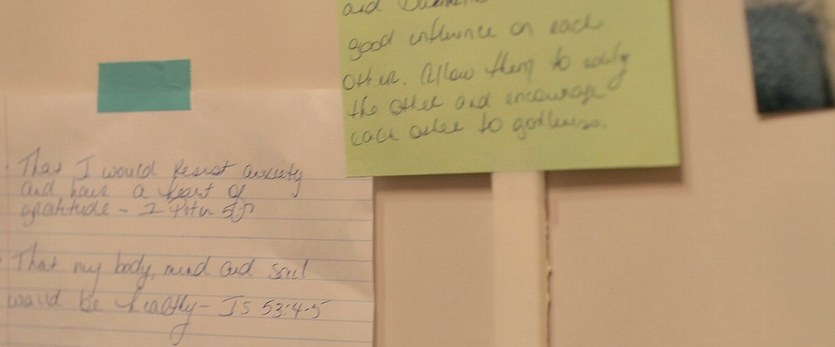 and
good influence on each
other. Allow them to edify
the other and encourage
each other to godliness.
That I would resist anxiety
and have a heart of
gratitude - I Peter 5:7
That my body, mind and soul
would be healthy - IS 53:4-5